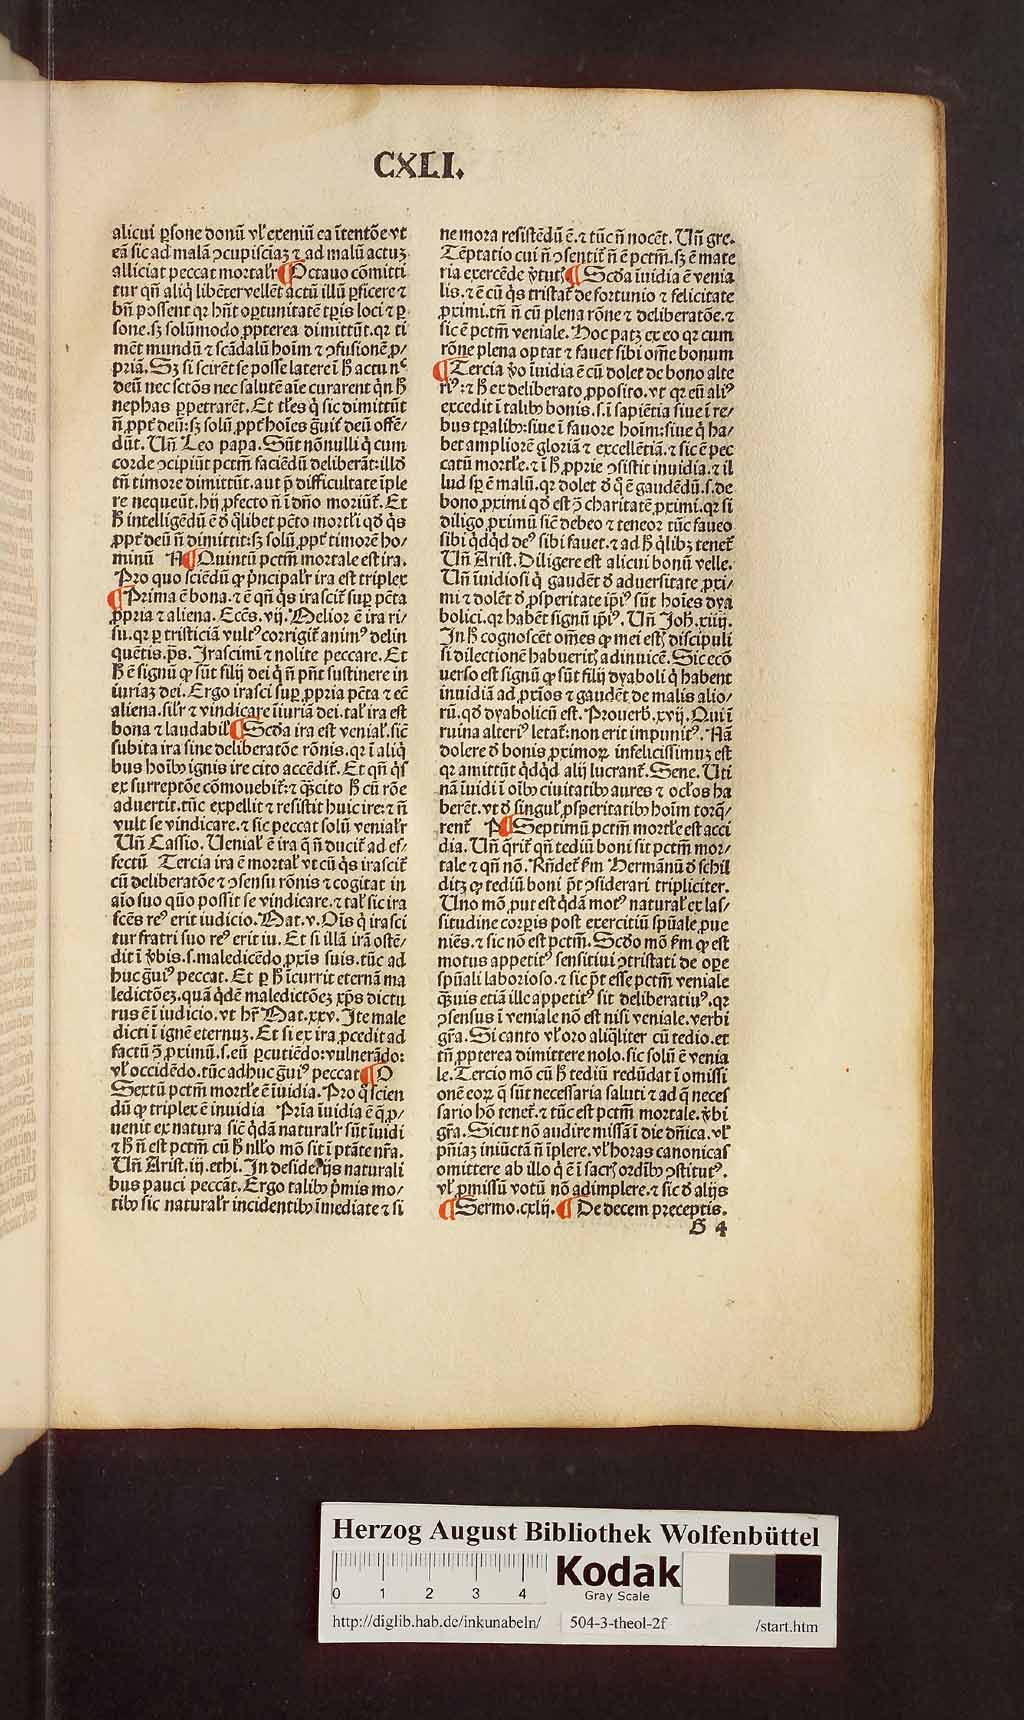 CXLI.
alicui ꝑsone donū vl̕ exeniū ea ītentōe vt
eā sic ad malā ↄcupiscīaꝫ ⁊ ad malū actuꝫ
alliciat peccat mortalr̕ ¶ Octauo cōmitti
tur qn̄ aliq̄ libēter vellēt actū illū ꝑficere ⁊
bn̄ possent qr hn̄t oꝑtunitatē tꝑis loci ⁊ ꝑ
sone. sꝫ solūmodo ꝓpterea dimittūt. qr ti
mēt mundū ⁊ scādalū hoīm ⁊ ↄfusionē ꝓ/
priā. Sꝫ si scirēt se posse latere ī h̄ actu nc̄
deū nec sctōs nec salutē aīe curarent qͥn h̄
nephas ꝑpetrarēt. Et tl̕es qͥ sic dimittūt
n̄ ꝓpt̕ deū: sꝫ solū ꝓpt̕ hoīes gͣuit̕ deū offē/
dūt. Un̄ Leo papa. Sūt nōnulli qͥ cum
corde ↄcipiūt pctm̄ faciēdū deliberāt: illd̕
tn̄ timore dimittūt. aut p̄ difficultate īple
re nequeūt. hij ꝓfecto n̄ ī dn̄o moriūt̕. Et
h̄ intelligēdū ē d̕ qͦlibet pctō mortl̕i qd̕ qͥs
ꝓpt̕ deū n̄ dimittit: sꝫ solū ꝓpt̕ timorē ho/
minū N ¶ Quintū pctm̄ mortale est ira.
Pro quo sciēdū ꝙ pͥncipalr̕ ira est triplex
¶ Prima ē bona. ⁊ ē qn̄ qͥs irascit̕ suꝑ pctā
ꝓpria ⁊ aliena. Eccēs. vij. Melior ē ira ri/
su. qr ꝑ tristiciā vultꝰ corrigit̕ animꝰ delin
quētis. ps̄. Irascimī ⁊ nolite peccare. Et
h̄ ē signū ꝙ sūt filij dei qͥ n̄ pn̄t sustinere in
iuriaꝫ dei. Ergo irasci suꝑ ꝓpria pctā ⁊ ec̄
aliena. silr̕ ⁊ vindicare iiuriā dei. tal̕ ira est
bona ⁊ laudabil̕ ¶ Scd̕a ira est venial̕. sic̄
subita ira sine deliberatōe rōnis. qr ī aliq̄
bus hoībꝰ ignis ire cito accēdit̕. Et qn̄ qͥs
ex surreptōe cōmouebit̕: ⁊ qͣcito h̄ cū rōe
aduertit. tūc expellit ⁊ resistit huic ire: ⁊ n̄
vult se vindicare. ⁊ sic peccat solū venialr̕
Un̄ Cassio. Uenial̕ ē ira q̄ n̄ ducit̕ ad ef/
fectū Tercia ira ē mortal̕ vt cū qͥs irascit̕
cū deliberatōe ⁊ ↄsensu rōnis ⁊ cogitat in
aīo suo quō possit se vindicare. ⁊ tal̕ sic ira
scēs reꝰ erit iudicio. Mat. v. Oīs qͥ irasci
tur fratri suo reꝰ erit iu. Et si illā irā ostē/
dit ī v̕bis. s. maledicēdo ꝓxīs suis. tūc ad
huc gͣuiꝰ peccat. Et ꝑ h̄ īcurrit eternā ma
ledictōeꝫ. quā qͥdē maledictōeꝫ xp̄s dictu
rus ē ī iudicio. vt hr̄ Mat. xxv. Ite male
dicti ī ignē eternuꝫ. Et si ex ira ꝓcedit ad
factū ↄ̄ ꝓximū. s. eū ꝑcutiēdo: vulnerādo:
vl̕ occidēdo. tūc adhuc gͣuiꝰ peccat ¶ O
Sextū pctm̄ mortl̕e ē īuidia. Pro qͦ scien
dū ꝙ triplex ē inuidia Prīa īuidia ē q̄ ꝓ/
uenit ex natura sic̄ qͥdā naturalr̕ sūt īuidi
⁊ h̄ n̄ est pctm̄ cū h̄ nll̕o mō sit ī ptāte nr̄a.
Un̄ Arist. iij. ethi. In desiderijs naturali
bus pauci peccāt. Ergo talibꝰ pͥmis mo/
tibꝰ sic naturalr̕ incidentibꝰ īmediate ⁊ si
ne mora resistēdū ē. ⁊ tūc n̄ nocēt. Un̄ gre.
Tēptatio cui n̄ ↄsentit̕ n̄ ē pctm̄. sꝫ ē mate
ria exercēde v̕tutꝭ ¶ Scd̕a īuidia ē venia
lis. ⁊ ē cū qͥs tristat̕ de fortunio ⁊ felicitate
ꝓximi. tn̄ n̄ cū plena rōne ⁊ deliberatōe. ⁊
sic ē pctm̄ veniale. Hoc patꝫ ex eo qr cum
rōne plena optat ⁊ fauet sibi om̄e bonum
¶ Tercia v̕o īuidia ē cū dolet de bono alte
riꝰ: ⁊ h̄ ex deliberato ꝓposito. vt qr eū aliꝰ
excedit ī talibꝰ bonis. s. ī sapiētia siue ī re/
bus tꝑalibꝰ: siue ī fauore hoīm: siue qͥ ha/
bet ampliorē gloriā ⁊ excellētiā. ⁊ sic ē pec
catū mortl̕e. ⁊ ī h̄ ꝓprie ↄsistit inuidia. ⁊ il
lud sꝑ ē malū. qr dolet d̕ qͦ ē gaudēdū. s. de
bono ꝓximi qd̕ est ↄ̄ charitatē ꝓximi. qr si
diligo ꝓximū sic̄ debeo ⁊ teneor tūc faueo
sibi qͥdqͥd deꝰ sibi fauet. ⁊ ad h̄ qͥlibꝫ tenet̕
Un̄ Arist. Diligere est alicui bonū velle.
Un̄ īuidiosi qͥ gaudēt d̕ aduersitate ꝓxi/
mi ⁊ dolēt d̕ ꝓsperitate ip̄iꝰ sūt hoīes dya
bolici. qr habēt signū ip̄iꝰ. Un̄ Joh̄. xiij.
In h̄ cognoscēt om̄es ꝙ mei estꝭ discipuli
si dilectionē habueritꝭ adinuicē. Sic ecō
uerso est signū ꝙ sūt filij dyaboli qͥ habent
inuidiā ad ꝓxīos ⁊ gaudēt de malis alio/
rū. qd̕ dyabolicū est. Prouerb. xvij. Qui ī
ruina alteriꝰ letat̕: non erit impunitꝰ. Nā
dolere d̕ bonis ꝓximoꝝ infelicissimuꝫ est
qr amittūt qͥdqͥd alij lucrant̕. Sene. Uti
nā īuidi ī oībꝰ ciuitatibꝰ aures ⁊ ocl̕os ha
berēt. vt d̕ singul̕ ꝓsperitatibꝰ hoīm torq̄/
rent̕ P ¶ Septimū pctm̄ mortl̕e est acci
dia. Un̄ qͥrit̕ qn̄ tediū boni sit pctm̄ mor/
tale ⁊ qn̄ nō. Rn̄det̕ ẜm Hermānū d̕ schil
ditꝫ ꝙ tediū boni pōt ↄsiderari tripliciter.
Uno mō put est qͥdā motꝰ natural̕ ex las/
situdine corꝑis post exercitiū spūale ꝓue
niēs. ⁊ sic nō est pctm̄. Scd̕o mō ẜm ꝙ est
motus appetitꝰ sensitiui ↄtristati de oꝑe
spūali laborioso. ⁊ sic pōt esse pctm̄ veniale
qͣuis etiā ille appetitꝰ sit deliberatiuꝰ. qr
ↄsensus ī veniale nō est nisi veniale. verbi
gr̄a. Si canto vl̕ oro aliqͣliter cū tedio. et
tn̄ ꝓpterea dimittere nolo. sic solū ē venia
le. Tercio mō cū h̄ tediū redūdat ī omissi
onē eoꝝ q̄ sūt necessaria saluti ⁊ ad q̄ neces
sario hō tenet̕. ⁊ tūc est pctm̄ mortale. v̕bi
gr̄a. Sicut nō audire missā ī die dn̄ica. vl̕
pn̄iaꝫ iniūctā n̄ īplere. vl̕ horas canonicas
omittere ab illo qͥ ē ī sacrꝭ ordībꝰ ↄstitutꝰ.
vl̕ ꝓmissū votū nō adimplere. ⁊ sic d̕ alijs
¶ Sermo. cxlij. ¶ De decem preceptis.
B 4
Herzog August Bibliothek Wolfenbüttel
0 1 2 3 4
Kodak
Gray Scale
http://diglib.hab.de/inkunabeln/ 504-3-theol-2f /start.htm